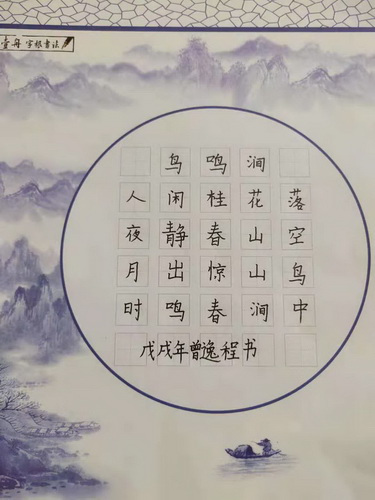 壹舟字根书法
鸟鸣涧
人闲桂花落
夜静春山空
月出惊山鸟
时鸣春涧中
戊戌年曾逸程书